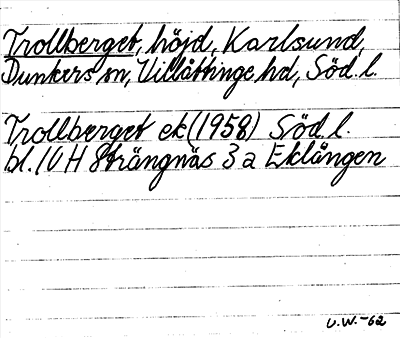 Trollberget, höjd, Karlsund,
Dunkers sn, Villåttinge hd, Söd. l.
Trollberget ek (1958) Söd. l.
bl. 10 H Strängnäs 3 a Eklången
U.W. -62